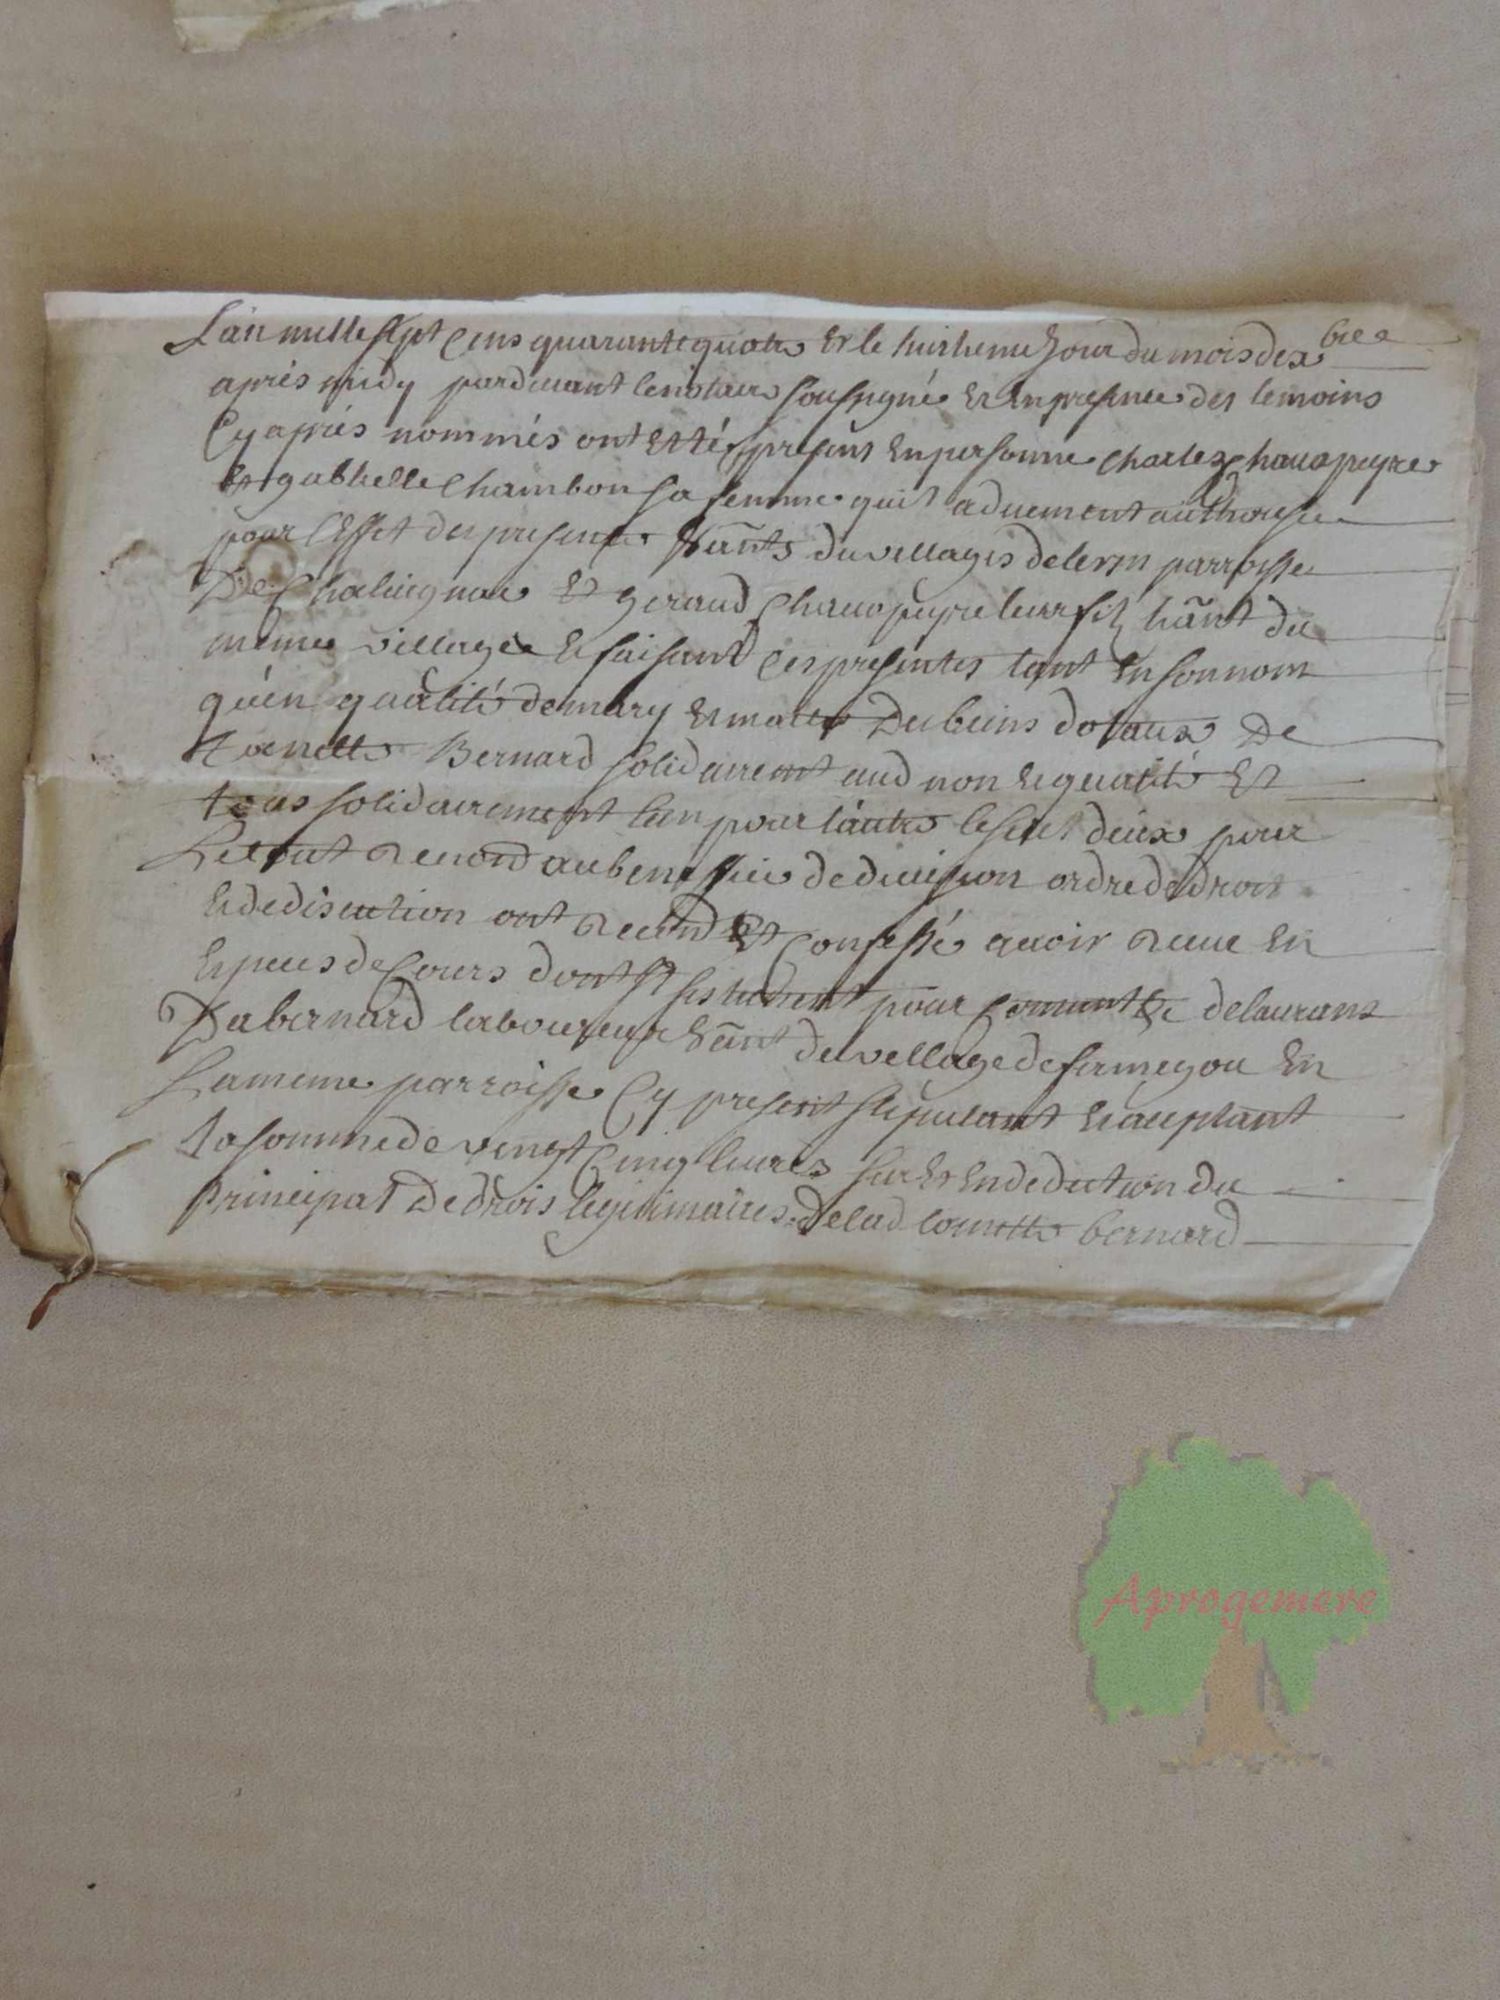 L'an mille sept cens quarante quatre et le huitieme jour du mois de xbre
après midy pardevant le notaire sousigné et en presence des temoins
cy après nommés ont etté present en personne charles chauopeyre
et gabrielle chambon sa femme qu'il a duement authorisée
pour l'effet des presentes hãnts du village de parroisse
De Chalvignac et geraud chauopeyre leur fils hãnt du
meme village et faisant ces presentes tant en son nom
qu'en qualité de mary et maitre des biens dotaux De
Toinette Bernard solidairement aud non et qualité et
tous solidairement l'un pour l'autre le seul deux pour
Le tout renond au beneffice de division ordre de droit
et de discution ont et confessé avoir receue en
especes de cours dont pour de laurans
Dabernard laboureur hãnt du village de en
La meme parroisse cy present stipulant et aceptant
la somme de vingt cinq livres sur et en deduction du
principal De drois legitimaires de lad toinette bernard
Aprogemere